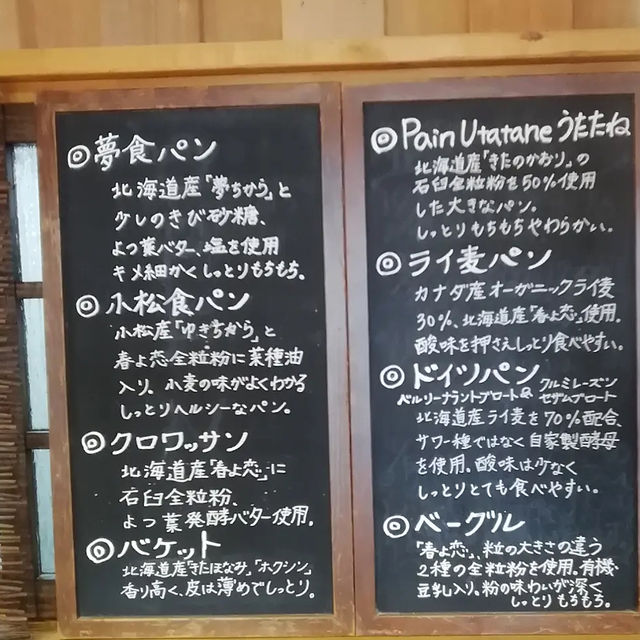 ◎夢食パン
北海道産「夢ちから」と
少しのきび砂糖、
よつ葉バター、塩を使用
キメ細かくしっとりもちもち。
◎小松食パン
小松産「ゆきちから」と
春よ恋全粒粉に菜種油
入り、小麦の味がよくわかる
しっとりヘルシーなパン。
◎クロワッサン
北海道産「春よ恋」に
石臼全粒粉、
よつ葉発酵バター使用。
◎バケット
北海道産「きたほなみ」、「ホクシン」
香り高く、皮は薄めでしっとり。
◎Pain Utatane うたたね
北海道産「きたのかおり」の
石臼全粒粉を50%使用
した大きなパン。
しっとりもちもちやわらかい。
◎ライ麦パン
カナダ産オーガニックライ麦
30%、北海道産「春よ恋」使用。
酸味を押さえしっとり食べやすい。
◎ドイツパン
クルミレーズン
ベルリーナラントブロート& セザムブロート
北海道産ライ麦を70%配合、
サワー種ではなく自家製酵母
を使用。酸味は少なく
しっとりとても食べやすい。
◎ベーグル
「春よ恋」、粒の大きさの違う
2種の全粒粉を使用。有機
豆乳入り。粉の味わいが深く
しっとりもちもち。